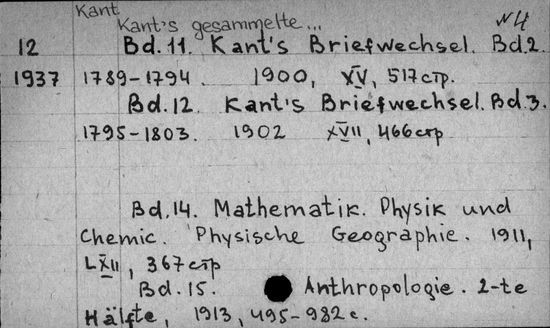 Kant
Kant's gesammelte... № 4
12 Bd. 11. Kant's Briefwechsel. Bd. 2.
1937 1789-1794. 1900, XV, 517 стр.
Bd. 12. Kant's Briefwechsel. Bd. 3.
1795-1803. 1902 XVII, 466 стр
Bd. 14. Mathematik. Physik und
Chemie. Physische Geographie. 1911,
LXII, 367 стр
Bd. 15. Anthropologie. 2-te
Hälfte, 1913, 495-982 с.